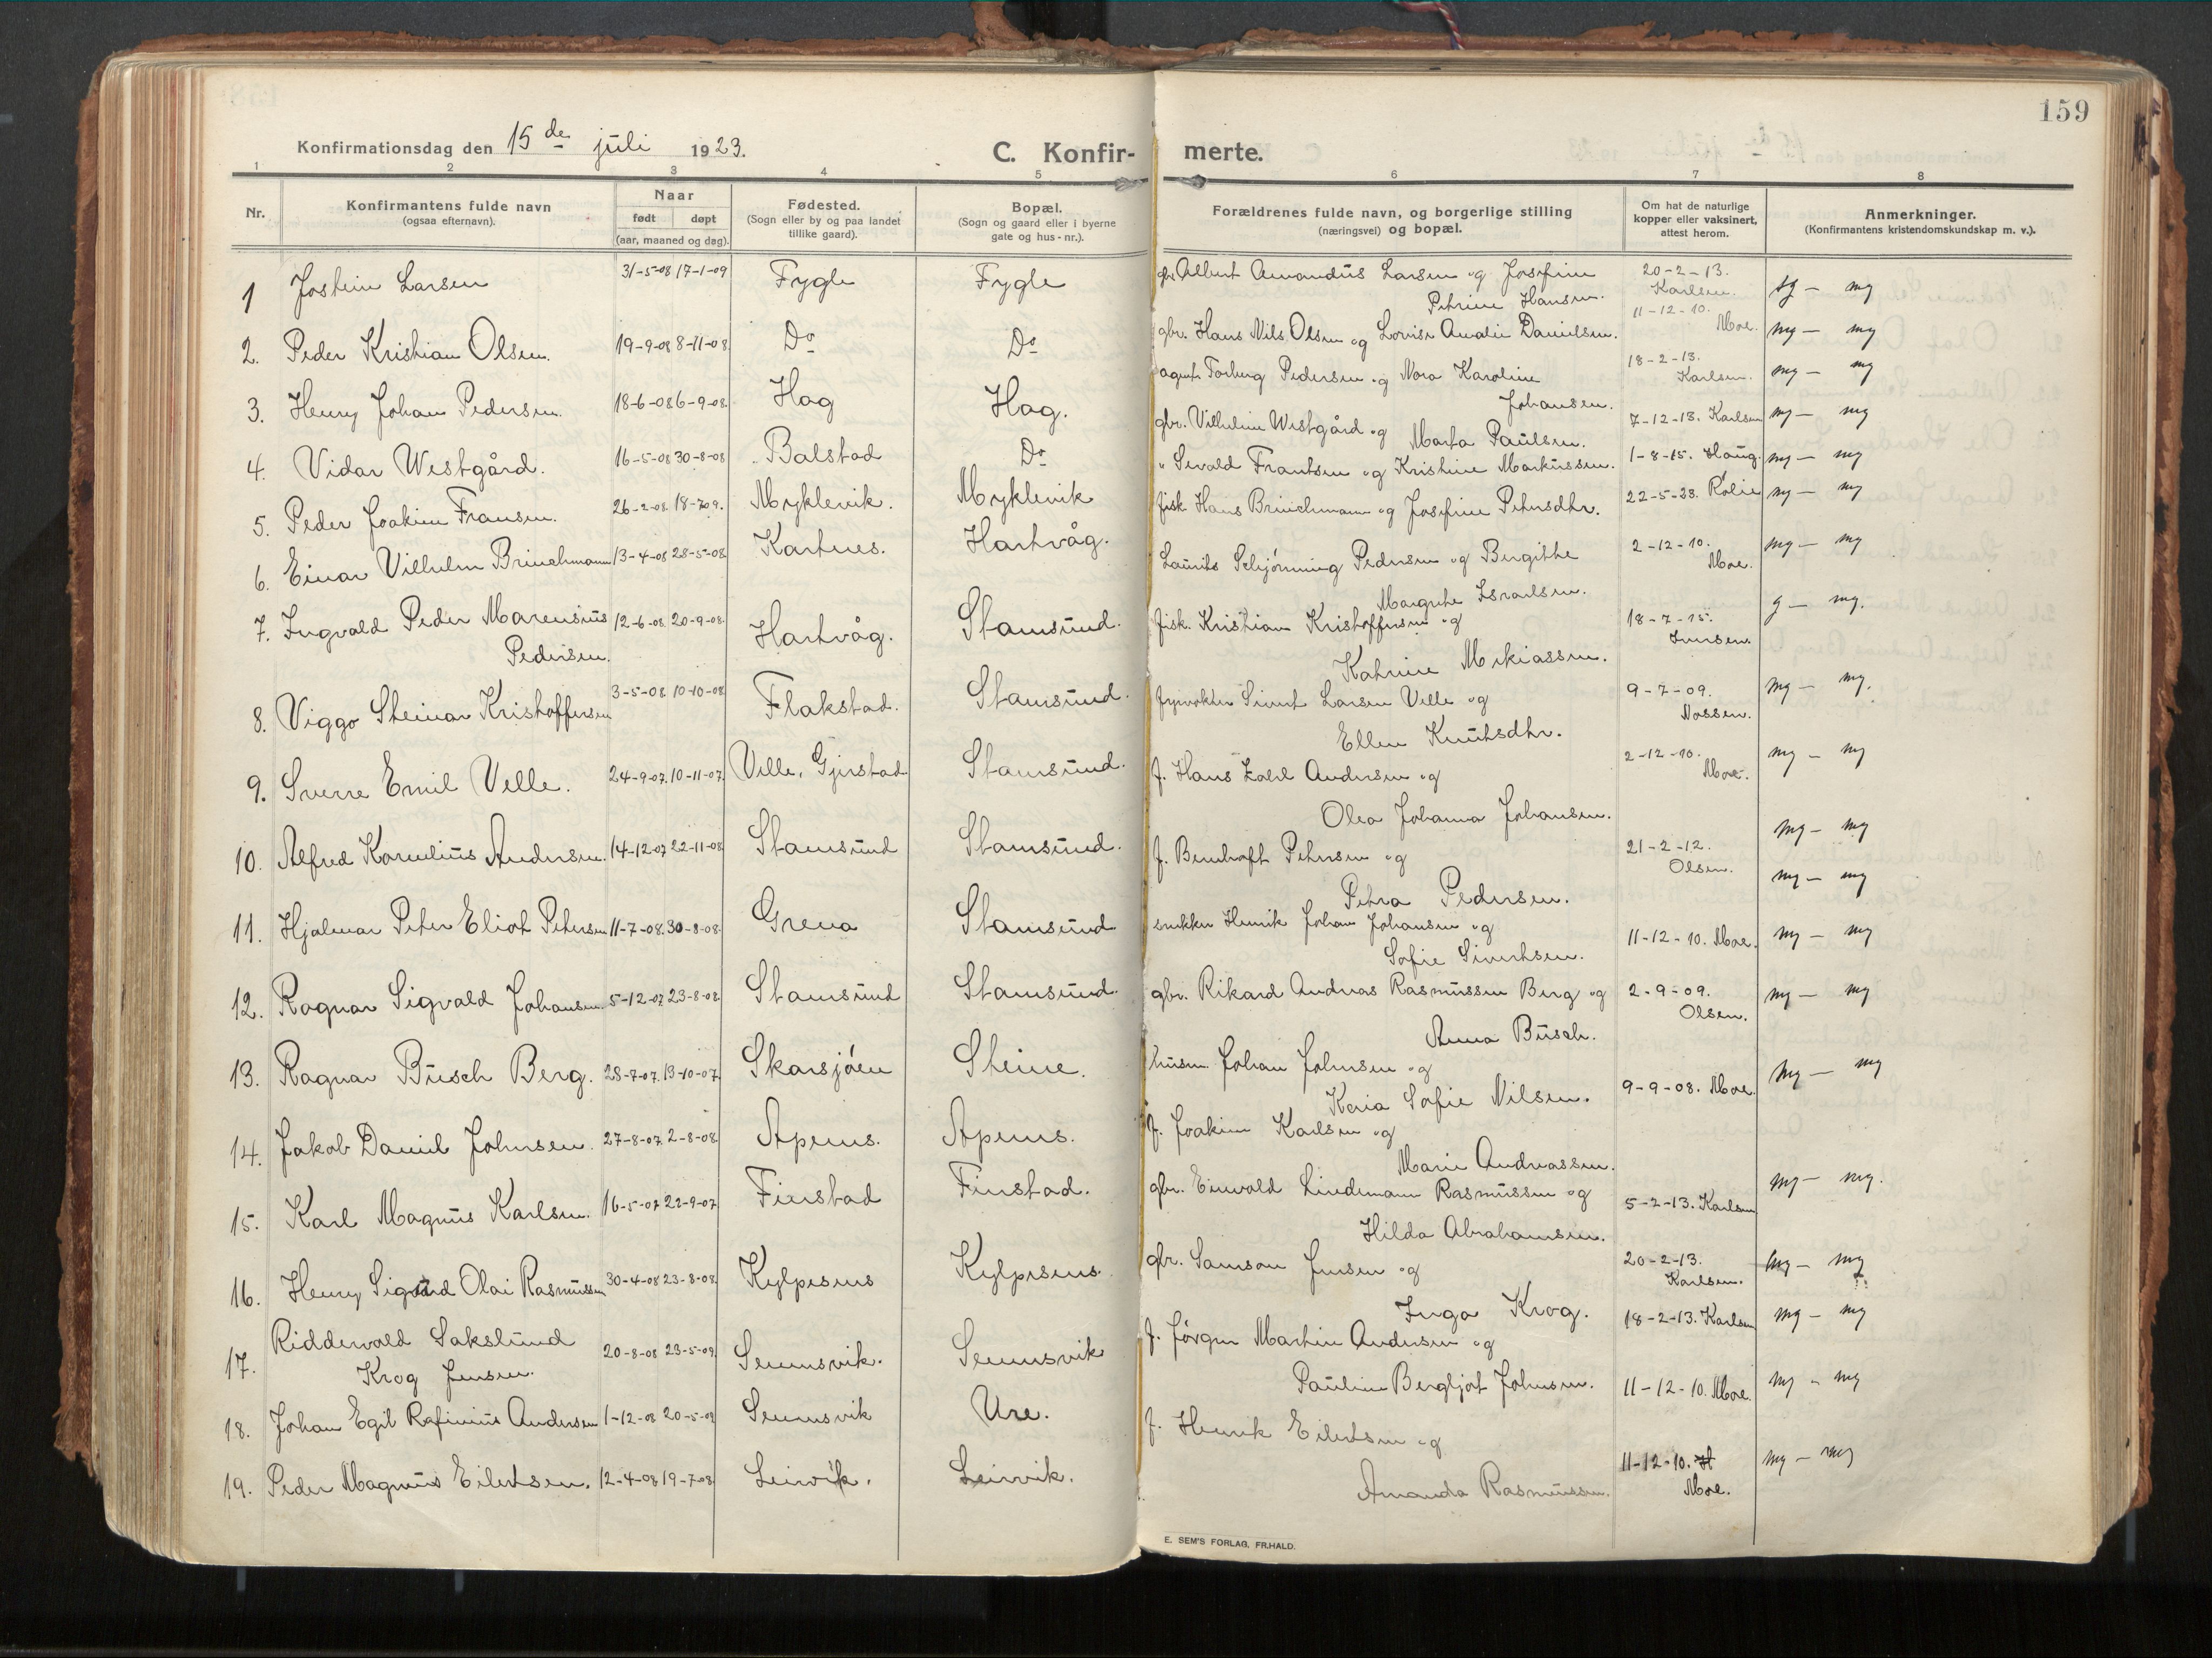 159
Konfirmationsdag den 15de juli 1923.
C. Konfir- merte.
1 2 3 4 5 6 7 8
Nr.
Konfirmantens fulde navn
(ogsaa efternavn).
Naar
født døpt
(aar, maaned og dag).
Fødested.
(Sogn eller by og paa landet
tillike gaard).
Bopæl.
(Sogn og gaard eller i byerne
gate og hus-nr.).
Forældrenes fulde navn, og borgerlige stilling
(næringsvei) og bopæl.
Om hat de naturlige
kopper eller vaksinert,
attest herom.
Anmerkninger.
(Konfirmantens kristendomskundskap m. v.).
1 Jostein Larsen 31-5-08 17-1-09 Fygle Fygle gbr. Albert Amandus Larsen og Josefine
Petrine Hansen. 20-2-13.
Karlsen. tg - mg
2. Peder Kristian Olsen. 19-9-08 8-11-08. Do Do gbr. Hans Nils Olsen og Lovise Amalie Danielsen. 11-12-10.
Moe. mg - mg
3. Henry Johan Pedersen. 18-6-08 6-9-08. Hag Hag. agent Torberg Pedersen og Nora Karoline
Johansen. 18-2-13.
Karlsen. mg - mg
4. Vidar Westgård. 16-5-08 30-8-08 Balstad Do gbr. Vilhelm Westgård og Marta Paulsen. 7-12-13. Karlsen mg - mg
5. Peder Joakim Fransen. 26-2-08. 18-7-09. Myklevik. Myklevik " Sevald Frantsen og Kristine Markussen. 1-8-15. Haug. mg - mg
6. Einar Vilhelm Brinchmann 13-4-08 28-5-08. Kartnes. Hartvåg. fisk. Hans Brinchmann og Josefine Petersdtr. 22-5-23. Rolie mg - mg
7. Ingvald Peder Marensius
Pedersen. 12-6-08. 20-9-08. Hartvåg. Stamsund. Laurits Schjønning Pedersen og Bergitte
Margrete Israelsen. 2-12-10.
Moe. mg - mg
8. Viggo Steinar Kristoffersen 3-5-08. 10-10-08. Flakstad. Stamsund. fisk. Kristian Kristoffersen og
Katrine Mekiassen. 18-7-15.
Iversen. g - mg.
9. Sverre Emil Velle. 24-9-07. 10-11-07. Velle, Gjerstad Stamsund. fyrvokter Sivert Larsen Velle og
Ellen Knutsdtr. 9-7-09.
Nossen. mg - mg.
10. Alfred Kornelius Andersen. 14-12-07 22-11-08 Stamsund Stamsund. f. Hans Andersen og
Olea Johanna Johansen. 2-12-10.
Moe. mg - mg
11. Hjalmar Peter Eliot Petersen 11-7-08. 30-8-08. Grena Stamsund f. Bernhoft Petersen og
Petra Pedersen. 21-2-12.
Olsen. mg - mg
12. Ragnar Sigvald Johansen. 5-12-07 23-8-08. Stamsund Stamsund. snekker Henrik Johan Johansen og
Sofie Sivertsen. 11-12-10. Moe. mg - mg
13. Ragnar Busch Berg. 28-7-07. 13-10-07. Skarsjøen Steine. gbr. Rikard Andreas Rasmussen Berg og
Anna Busch. 2-9-09.
Olsen. mg - mg
14. Jakob Daniel Johnsen. 27-8-07. 2-8-08. Apenes. Apenes. husm. Johan Johnsen og
Karia Sofie Nilsen. 9-9-08. Moe. mg - mg
15. Karl Magnus Karlsen. 16-5-07 22-9-07 Finstad Finstad. f. Joakim Karlsen og
Marie Andreassen. mg - mg
16. Henry Sigurd Olai Rasmussen 30-4-08 23-8-08. Kylpesnes Kylpesnes. gbr. Einvald Lindemann Rasmussen og
Hilda Abrahamsen. 5-2-13. Karlsen mg - mg.
17. Riddervold Sakslund
Krog Jensen. 20-8-08 23-5-09. Sennesvik. Sennesvik gbr. Samson Jensen og
Inga Krog. 20-2-13.
Karlsen. mg - mg
18. Johan Egil Rafinius Andersen 1-12-08 20-5-09 Sennesvik Ure. f. Jørgen Martin Andersen og
Pauline Bergljot Johnsen. 18-2-13. Karlsen mg - mg
19. Peder Magnus Eilertsen. 12-4-08 19-7-08 Leirvik. Leirvik. f. Henrik Eilertsen og
Amanda Rasmussen. 11-12-10. Moe. mg - mg
11-12-10.
Moe. mg - mg
E. SEM'S FORLAG, FR.HALD.